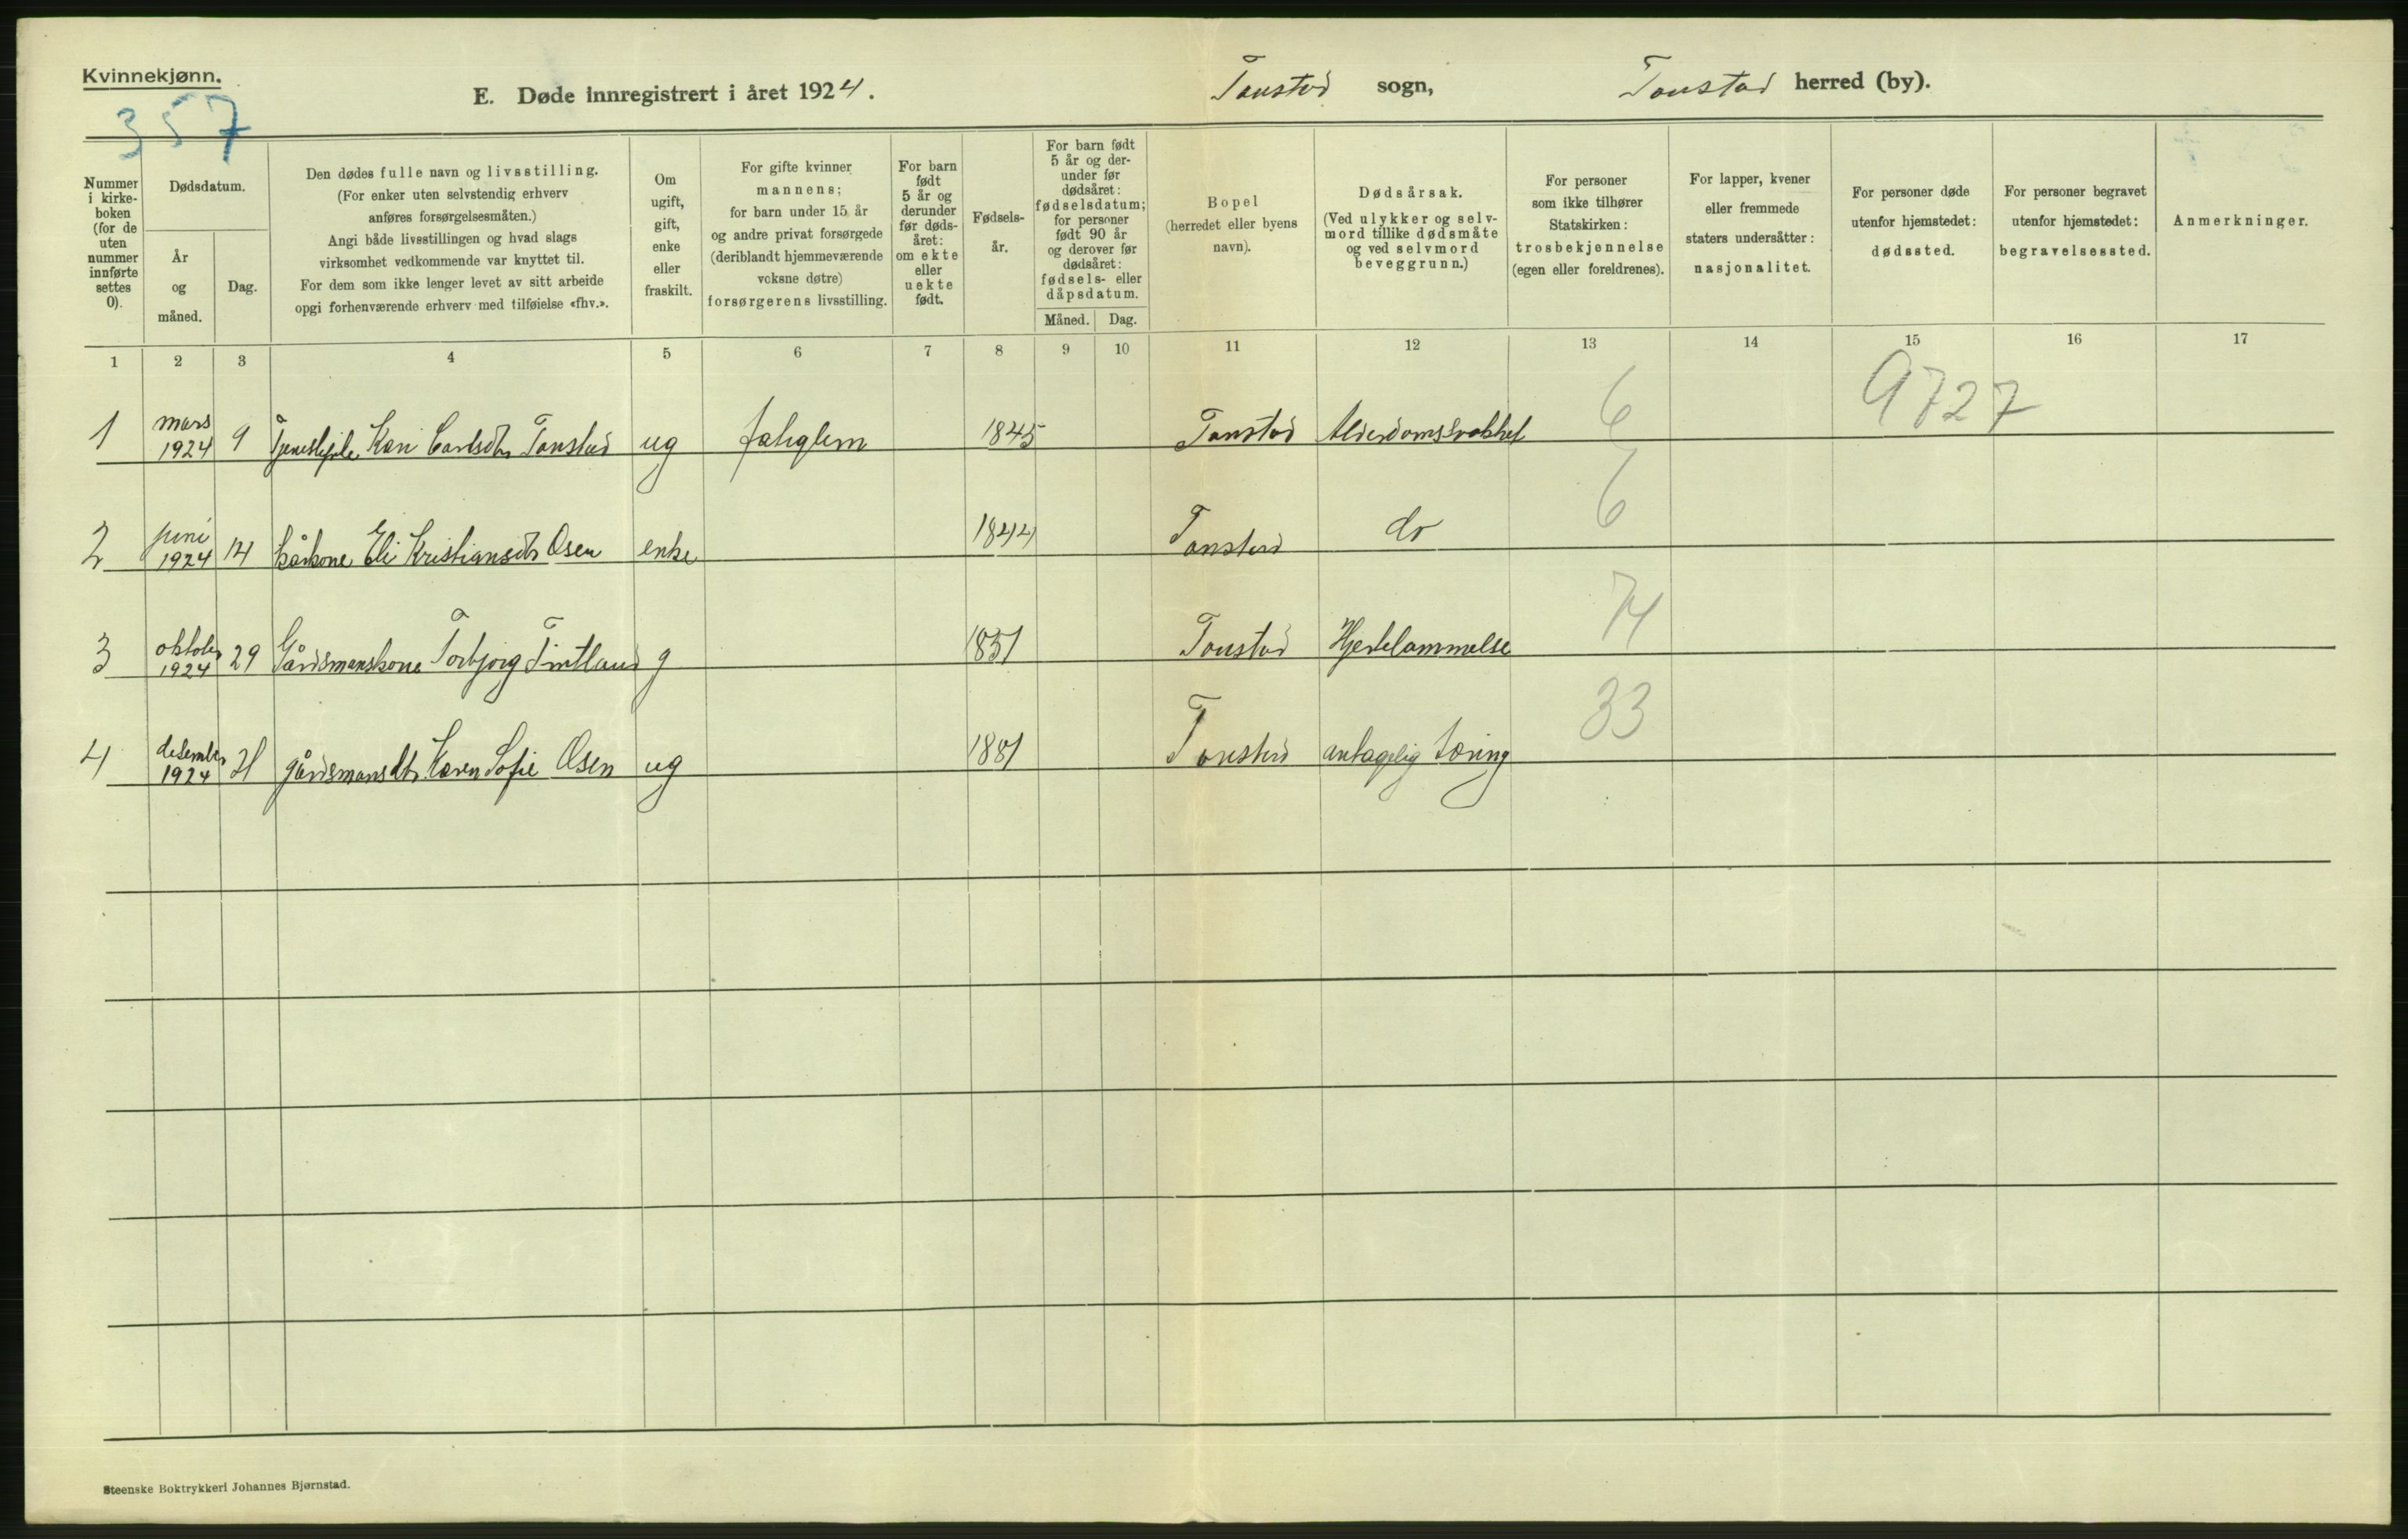 Kvinnekjønn.
357
E. Døde innregistrert i året 1924. Tonstad sogn, Tonstad herred (by).
Nummer i kirkeboken (for de uten nummer innførte settes 0).
Dødsdatum.
År og måned.
Dag.
Den dødes fulle navn og livsstilling.
(For enker uten selvstendig erhverv
anføres forsørgelsesmåten.)
Angi både livsstillingen og hvad slags
virksomhet vedkommende var knyttet til.
For dem som ikke lenger levet av sitt arbeide
opgi forhenværende erhverv med tilføielse «fhv.».
Om ugift, gift, enke eller fraskilt.
For gifte kvinner
mannens;
for barn under 15 år
og andre privat forsørgede
(deriblandt hjemmeværende
voksne døtre)
forsørgerens livsstilling.
For barn født 5 år og derunder før dødsåret: om ekte eller uekte født.
Fødselsår.
For barn født 5 år og derunder før dødsåret: fødselsdatum; for personer født 90 år og derover før dødsåret: fødsels- eller dåpsdatum.
Måned. Dag.
Bopel
(herredet eller byens
navn).
Dødsårsak.
(Ved ulykker og selvmord tillike dødsmåte
og ved selvmord
beveggrunn.)
For personer
som ikke tilhører
Statskirken:
trosbekjennelse
(egen eller foreldrenes).
For lapper, kvener
eller fremmede
staters undersåtter:
nasjonalitet.
For personer døde
utenfor hjemstedet:
dødssted.
For personer begravet
utenfor hjemstedet:
begravelsessted.
Anmerkninger.
1 2 3 4 5 6 7 8 9 10 11 12 13 14 15 16 17
9727
1 mars 1924 9 Kari Carlsdtr Tonstad ug fatiglem 1845 Tonstad Alderdomssvakhet 6
2 juni 1924 14 Kårkone Eli Kristiansdtr Osen enke 1844 Tonstad do 6
3 oktober 1924 29 Gårdmanskone Torbjorg Tintland g 1851 Tonstad Hjertelammelse 74
4 desember 1924 21 gårdmansdtr. Karen Sofie Osen ug 1881 Tonstad antagelig tæring 33
Steenske Boktrykkeri Johannes Bjørnstad.